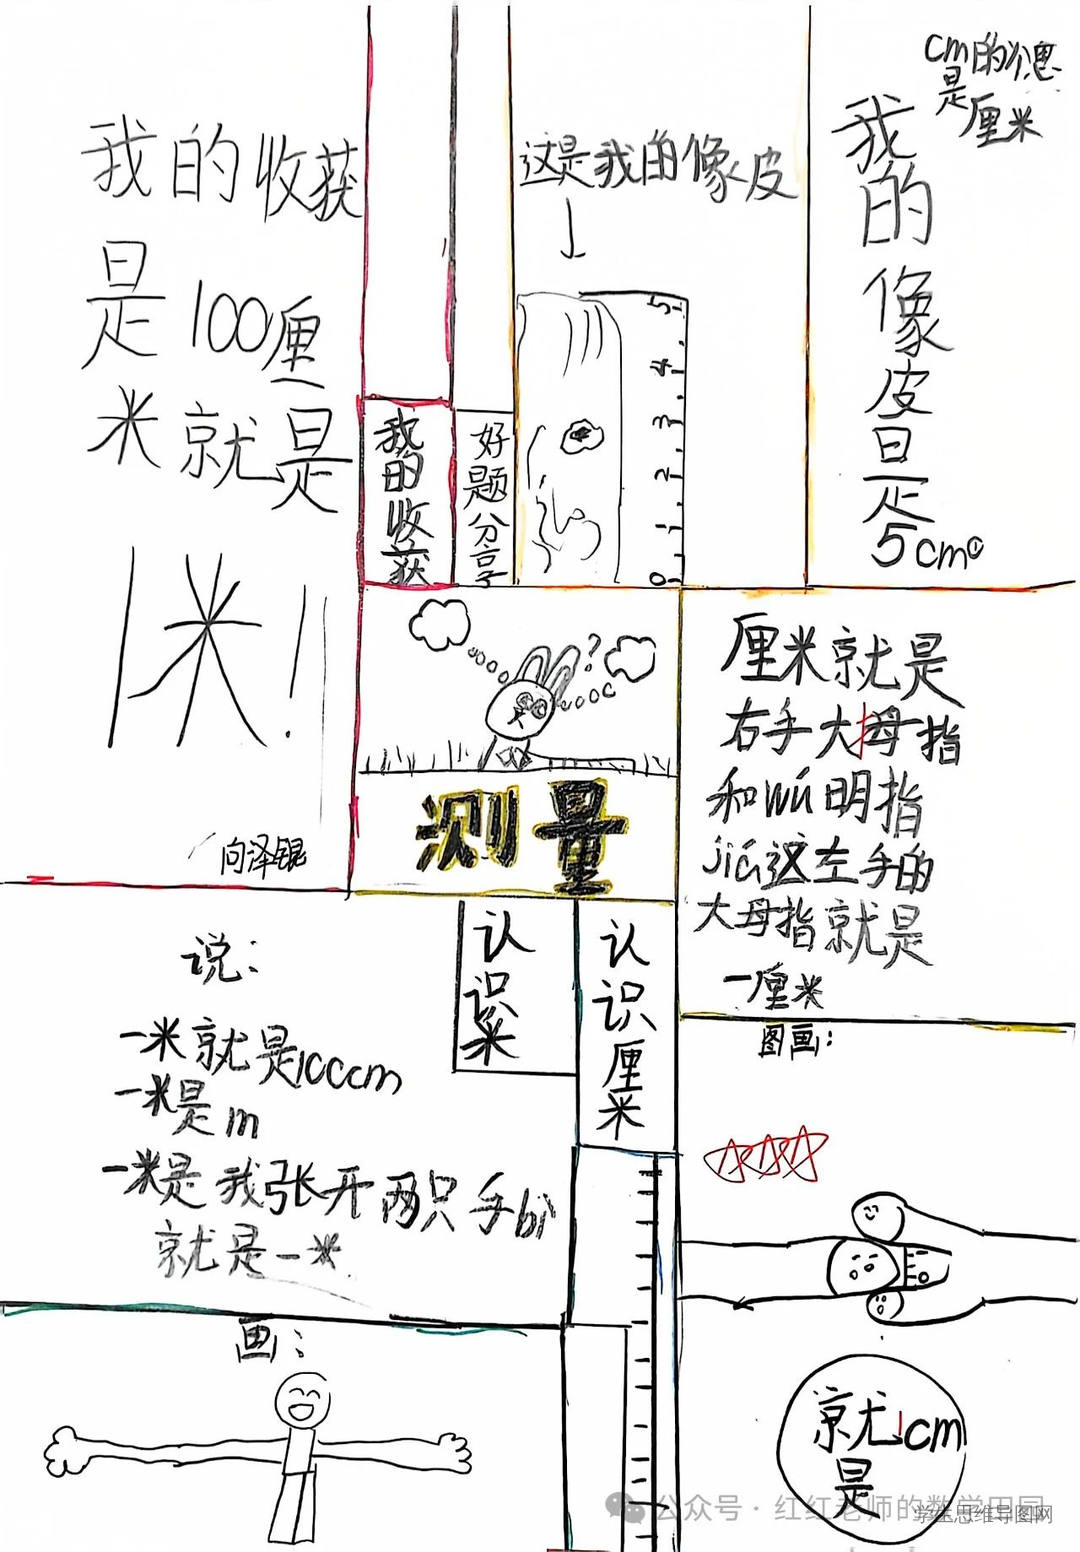 我的收获
是100厘
米就是
1米!
向泽锟
我的收获
好题分享
这是我的像皮
5
4
3
2
1
0
cm的意思
是厘米
我的像皮是5cm。
测量
?
厘米就是
右手大母指
和wú明指
jiā这左手的
大母指就是
一厘米
图画:
就是1cm
认识厘米
认识米
说:
一米就是100cm
一米是m
一米是我张开两只手bì
就是一米.
画:
公众号·红红老师的数学田园
学生思维导图网